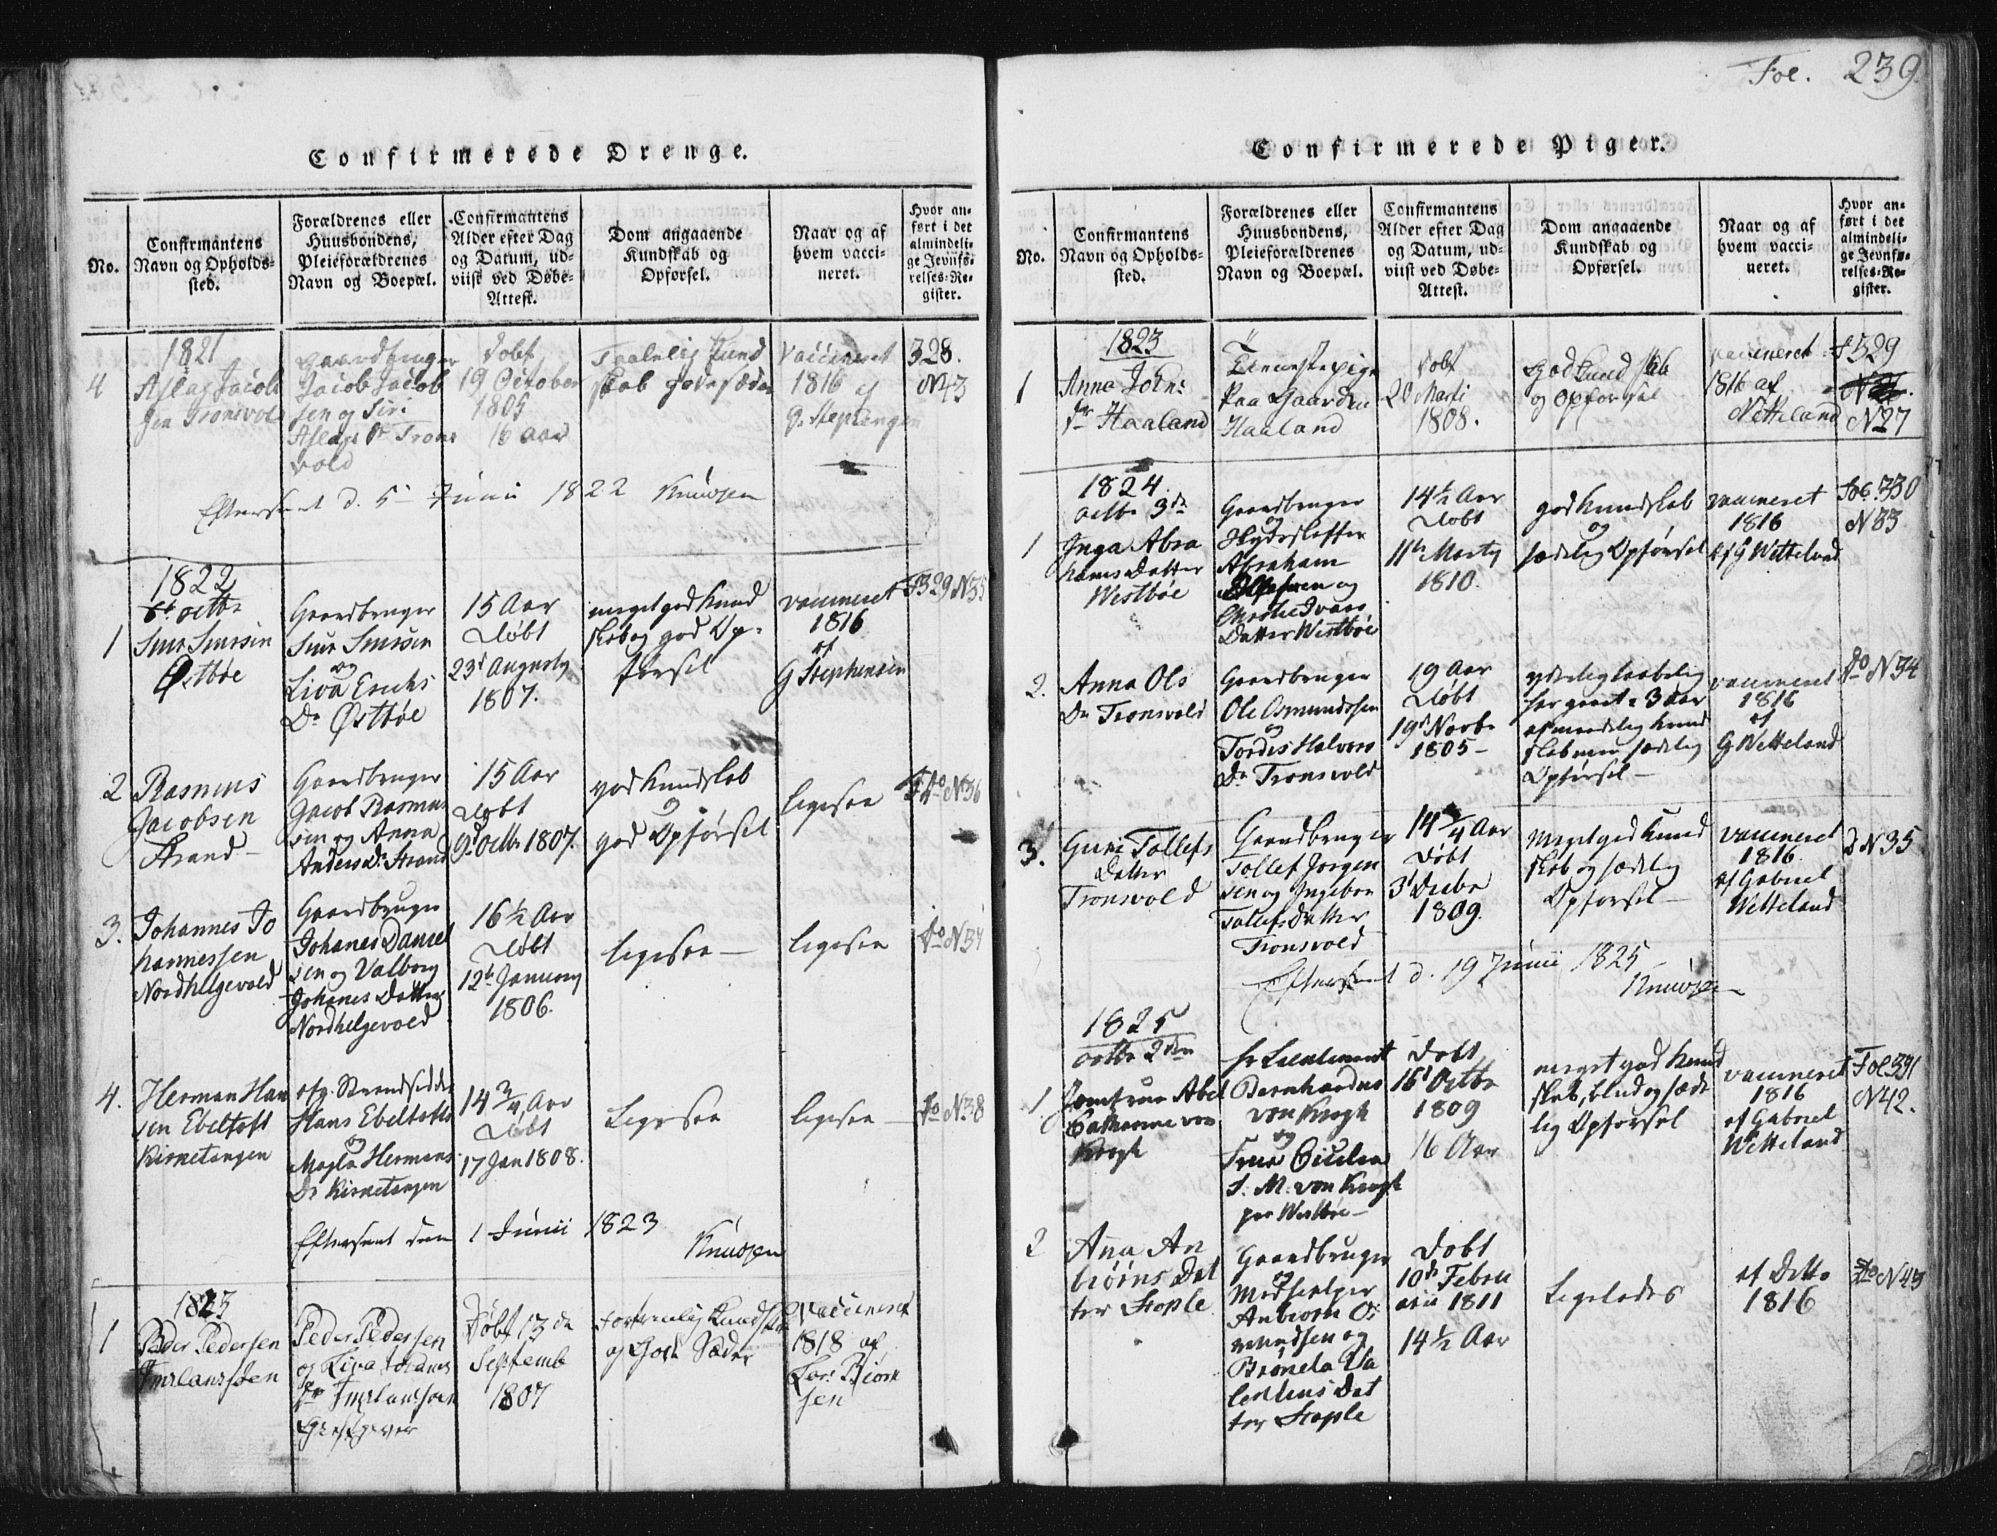 Fol. 239.
Confirmerede Drenge.
No.
Confirmantens
Navn og Opholds-
sted.
Forældrenes eller
Huusbondens,
Pleieforældrenes
Navn og Boepæl.
Confirmantens
Alder efter Dag
og Datum, ud-
viist ved Døbe-
Attest.
Dom angaaende
Kundskab og
Opførsel.
Naar og af
hvem vacci-
neret.
Hvor an-
ført i det
almindeli-
ge Jevnfø-
relses-Re-
gister.
1821
4
Aslag Jacob
sen Tronsvold
Gaardbruger
Jacob Jacob
sen og Siri
Aslags Dr Trons
vold
Døbt
19 October
1805
16 aar
Kund
skab gode sæder
Vaccineret
1816 af
328.
N43
Efterseet d. 5 Junii 1822 Knudsen
1822
6t octbr
1
Østbøe
Gaardbruger
og
Liva Erichs
Dr Østbøe
15 Aar
Døbt
23d Augusty
1807.
meget god Kund
skab og god Op-
førsel
vaccineret
1816
af
G Stephensen
F329 N35
2
Rasmus
Jacobsen
Strand
Gaardbruger
Jacob Rasmus
sen og Anna
Anders Dr Strand
15 Aar
Døbt
9d octbr 1807.
god Kundskab
og
god Opførsel
ligesaa
do N36
3.
Johannes Jo
hannessen
Nordhelgevold
Gaardbruger
Johanes Daniel
sen og Valborg
Johanes Datter
Nordhelgevold
16 1/2 Aar
Døbt
12t January
1806.
ligesaa
ligesaa
do N37
4.
Herman Han
sen Ebeltoft
Kirketangen
Strandsidder
Hans Ebeltoft
og
Hermans
Dr Kirketangen
14 3/4 Aar
Døbt
17 Jan 1808.
Ligesaa
ligesaa
do N38
Efterseet den 1 Junii 1823
Knudsen
1823
1
Peder Pedersen
Peder Pedersen
og Liva
Døbt 13de
Septemb
1807
Kundskab
og Gode Sæder
Vaccineret
1818 af
Confirmerede Piger.
No.
Confirmantens
Navn og Opholds-
sted.
Forældrenes eller
Huusbondens,
Pleieforældrenes
Navn og Boepæl.
Confirmantens
Alder efter Dag
og Datum, ud-
viist ved Døbe-
Attest.
Dom angaaende
Kundskab og
Opførsel.
Naar og af
hvem vacci-
neret.
Hvor an-
ført i det
almindeli-
ge Jevnfø-
relses-Re-
gister.
1823
1
Anna John:
dr Haaland
Tienestepige
paa Gaarden
Haaland
Døbt
20 Marti
1808.
God Kundskab
og opførsel
vaccineret
1816 af
Netteland
f 329
N27
1824.
octbr 3de
1
Inga Abra
hams Datter
Westbøe
Gaardbruger
og
Abraham
og
Datter Westbøe
14 1/2 Aar
Døbt
11te Marty
1810.
god Kundskab
og
sædelig Opførsel
vaccineret
1816
af G Wetteland
Fol. 330
N33
2.
Anna Ols
Dr Tronsvold
Gaardbruger
Ole Osmundssen
og
Tordis Halvors
Dr Tronsvold
19 Aar
Døbt
19d Novbr
1805
3 aar
sædelig
Opførsel
vaccineret
1816
af
G Wetteland
do N34
3.
Guri Tollefs
Datter
Tronsvold
Gaardbruger
Tollef Jørgen
sen og Ingebor
Tollefs Datter
Tronsvold
14 3/4 Aar
Døbt
3d Decbr
1809.
Meget god Kund
skab og sædelig
Opførsel
vaccineret
1816.
af Gabriel
Wetteland
N35
Efterseet d. 19 Junii 1825
Knudsen
1825
octbr 2den
1.
Jomfrue Abel
Catharine von
Krogh
Hr Lieutenant
Bernhardus
von Krogh
og
Frue Cicilia
S. M. von Krogh
paa Westbøe
Døbt
16d Octbr
1809
16 Aar
meget god Kund
skab, blud og sæde
lig Opførsel
vaccineret
1816
af Gabriel
Wetteland
Fol 331
N42.
2
Ana An
biørns Dat
ter Stople
Gaardbruger
og
Medhielper
Anbiørn Os
mundsen og
Va
lentins Dat
ter Stople
Døbt
10de Febru
arii 1811
14 1/2 Aar
Ligeledes
af Ditto
1816
do N43